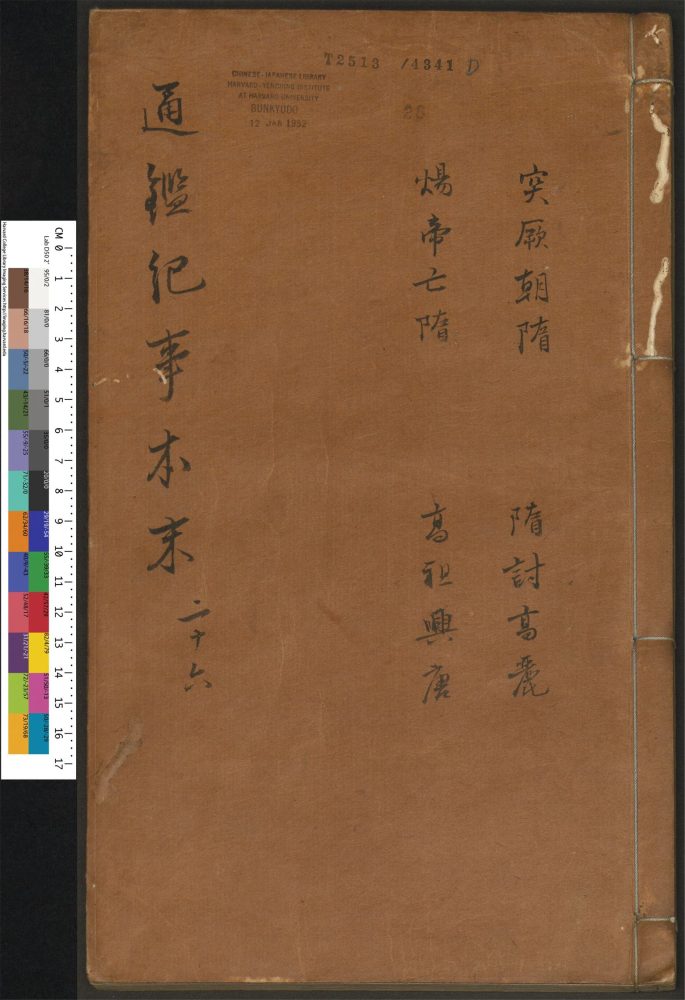 T2513 /4341 D
CHINESE-JAPANESE LIBRARY
HARVARD-YENCHING INSTITUTE
AT HARVARD UNIVERSITY
BUNKYUDO
12 JAN 1952
26
突厥朝隋 隋討高麗
煬帝亡隋 高祖興唐
通鑑紀事本末 二十六
CM 0 1 2 3 4 5 6 7 8 9 10 11 12 13 14 15 16 17
Harvard College Library Imaging Services